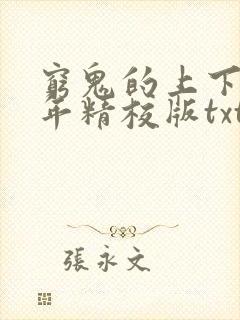 窮鬼的上下
年精校版txt
張永文